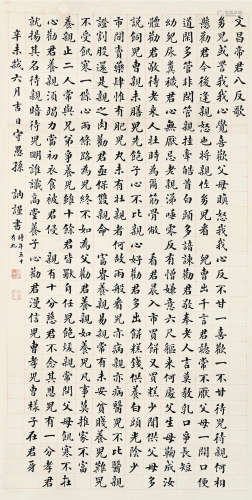 文昌帝君八反歌
多兒或詈我我心覺歡喜父母嗔怒我我心反不甘一喜歡一不甘待兒待親何相
懸勸君今後逢親怒也將親性多兒看 兒曹出千言君聽常不厭父母一開口便
道閒多管非閒管親掛牽皓首白頭多諳練勸君敬奉老人言莫教乳口爭長短
幼兒尿糞穢君心無厭忌老親涕唾零反有憎嫌意六尺軀來何處父生母鞠成汝
體勸君敬待老來人壯時為爾筋骨敝 看君晨入市買餅又買糕少聞供父母多
說飼兒曹親未膳兒先飽子心不比親心好勸君多出餅糕錢供養白頭光陰少
市間賣藥肆惟有肥兒丸未有壯親者何故兩般看兒亦病親亦病醫兒不比醫親
證割股還是親的肉勸君亟保雙親命 富貴養親易親常有未安貧賤養兒難兒
不受飢寒一條心兩條路為兒終不如為父勸君養親如養兒凡事莫推家不富
養親止二人常與兄弟爭養兒雖十人君皆獨自任兒飽煖親常問父母飢寒不在
心勸君養親須竭力當初衣食被君侵 親有十分慈君不念其恩兒有一分孝君
就揚其名待親暗待兒明誰識高堂養子心勸君漫信兒曹孝兒曹樣子在君身
辛未歲六月吉日守愚孫 訥謹書 時年五十有九